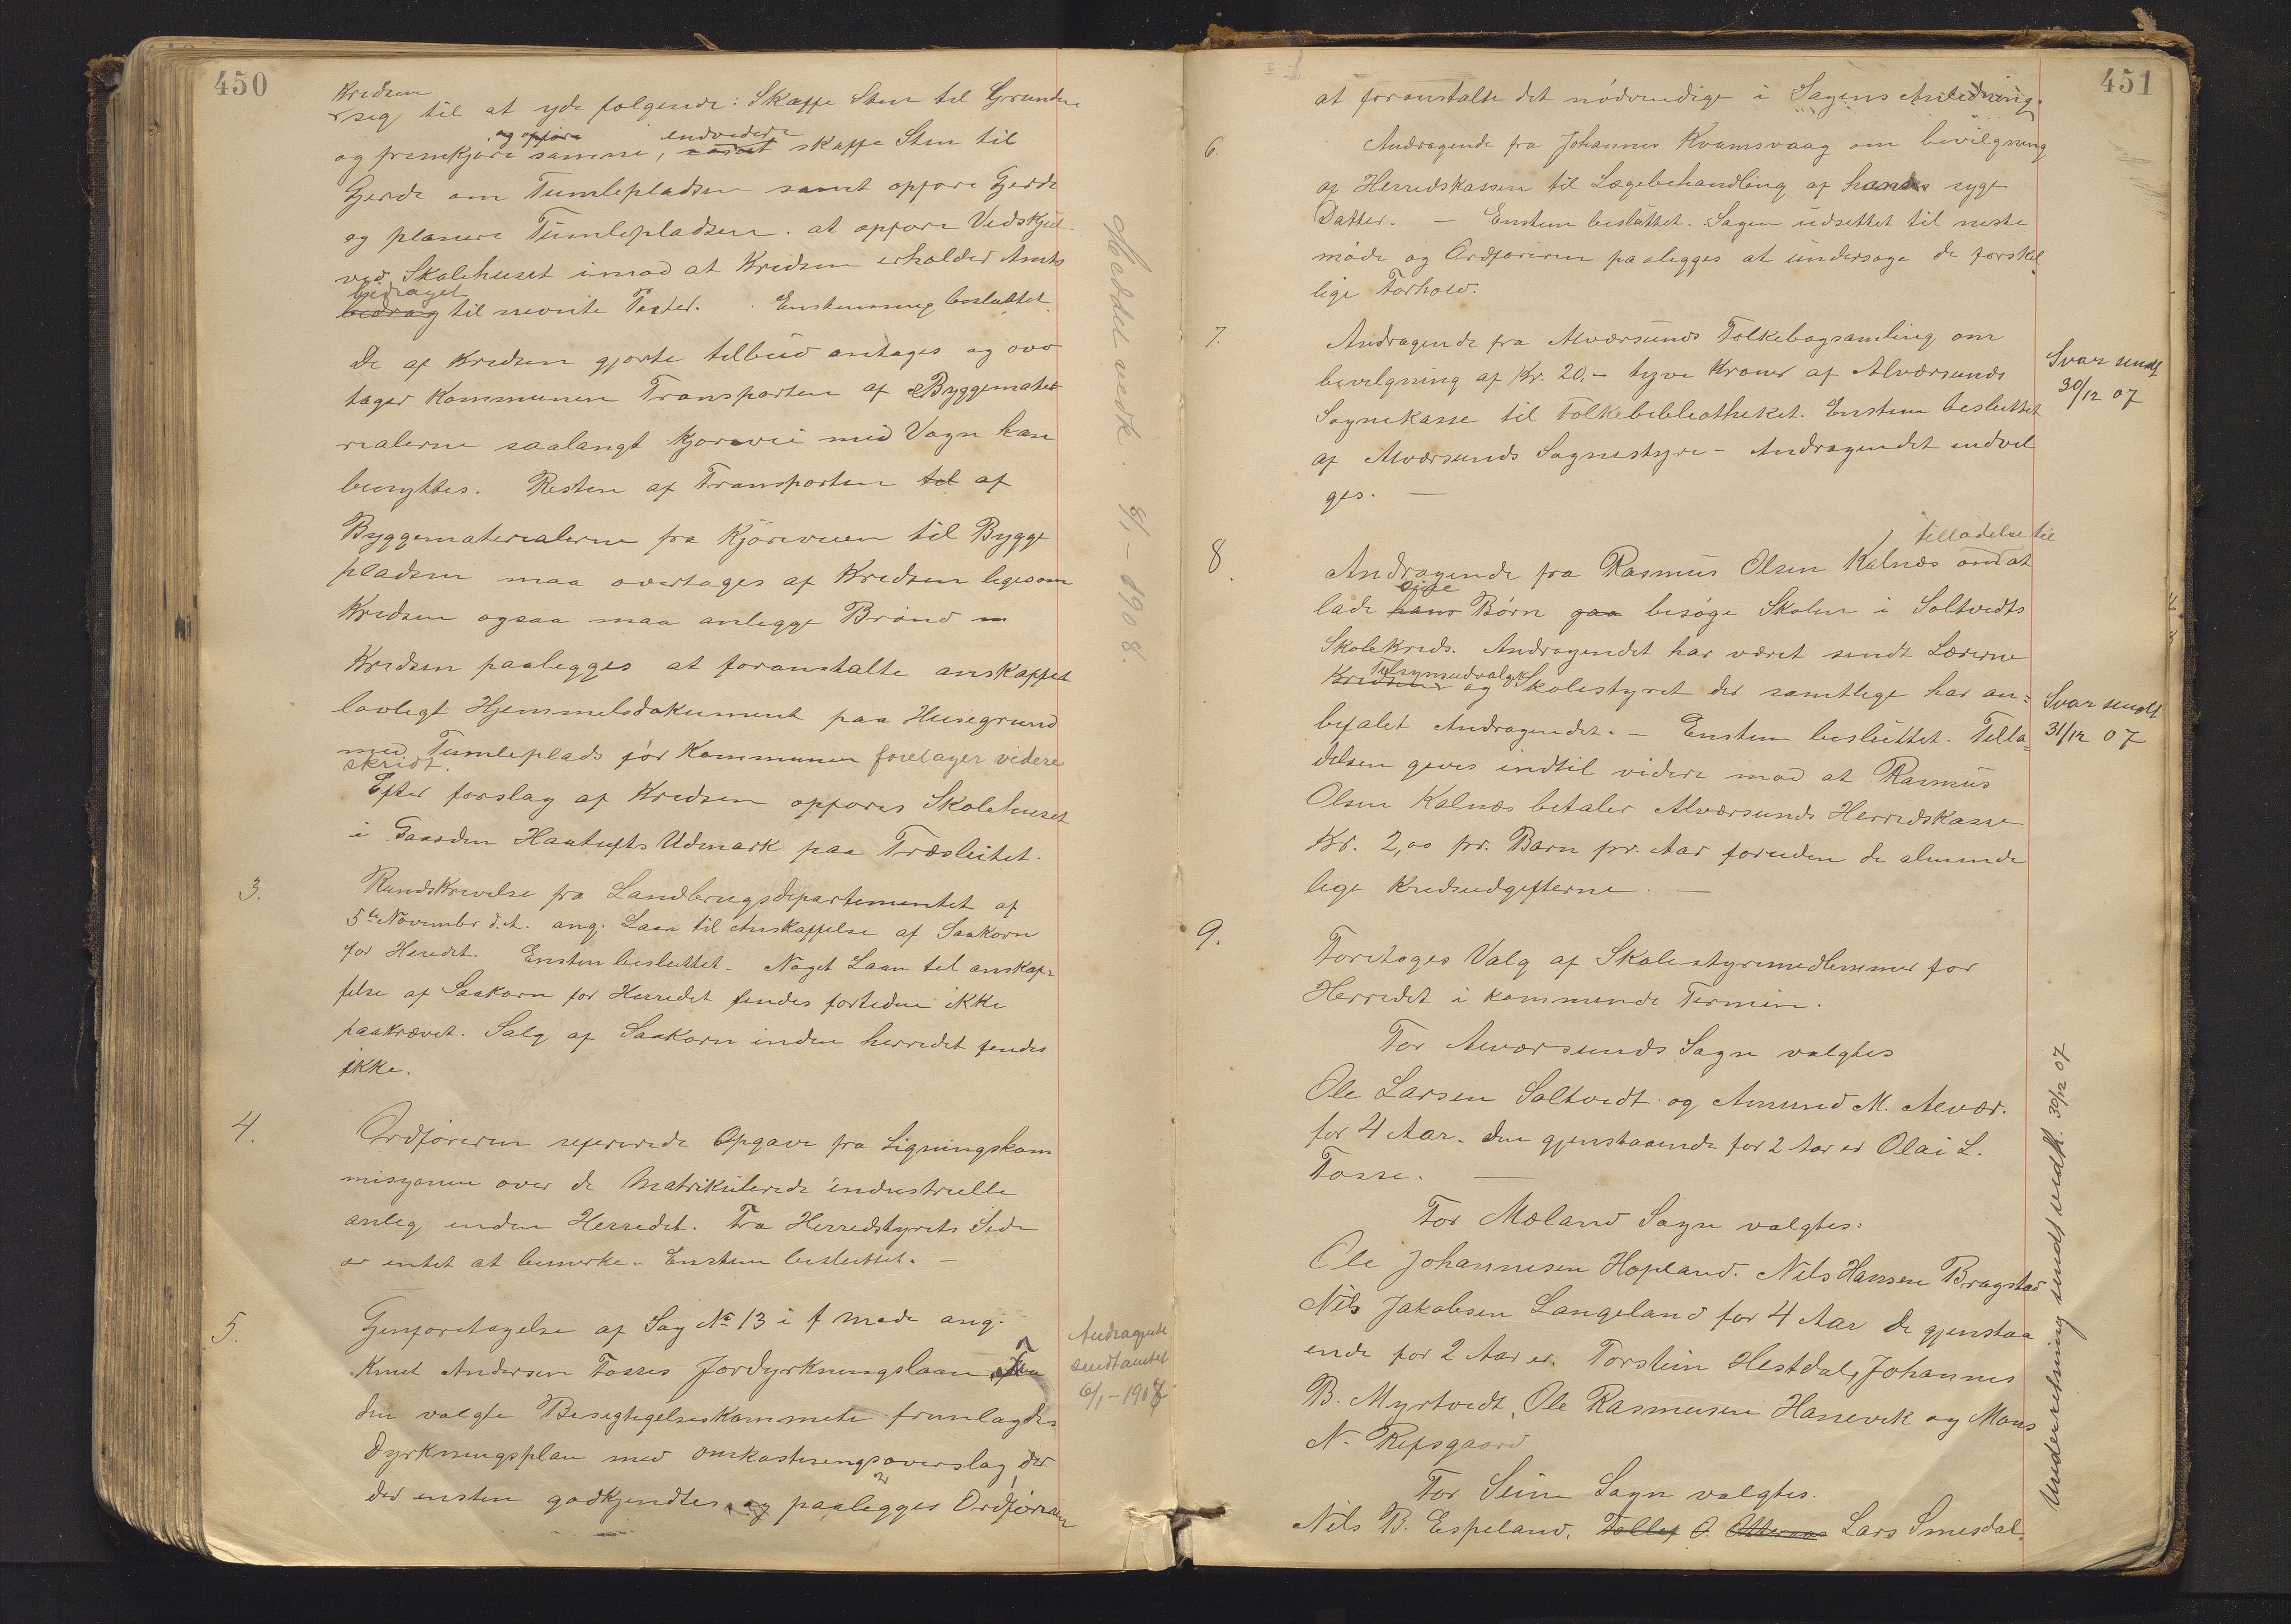 450
Kredsen
seg til at yde følgende: Skaffe Sten til Grunden
og opføre endvidere
og fremkjøre samme, samt skaffe Sten til
Gjerde om Tumlepladsen samt opføre Gjerde
og planere Tumlepladsen. at opføre Vedskjul
ved Skolehuset imod at Kredsen erholder Amts
bidraget
bedrag til nevnte Poster. Enstemmig besluttet.
De af Kredsen gjorte tilbud antages og over
tager Kommunen Transporten af Byggemate
rialerne saalangt kjørevei med Vogn kan
benyttes. Resten af Transporten tel af
Byggematerialerne fra Kjøreveien til Bygge
pladsen maa overtages af Kredsen ligesom
Kredsen ogsaa maa anlegge Brønd
Kredsen paalegges at foranstalte anskaffet
lovligt Hjemmelsdokument paa Husegrund
med Tumleplads før Kommunen foretager videre
skridt.
Efter forslag af Kredsen opføres Skolehuset
i Gaarden Haatufts Udmark paa Træsleitet.
3. Rundskrivelse fra Landbrugsdepartementet af
5te November d.A. ang. Laan til Anskaffelse af Saakorn
for Heredet. Enstem besluttet. Noget Laan tel anskaf-
felse af Saakorn for Herredet fendes fortiden ikke
paakrævet. Salg af Saakorn inden herredet fendes
ikke.
4. Ordføreren refererede Opgave fra Ligningskom
misjonen over de Matrikulerede industrielle
anleg inden Herredet. Fra Herredstyrets Side
er intet at bemerke. Enstem besluttet. —
5. Genforetagelse af Sag No 13 i f møde ang.
Knut Andersen Fosses Jordyrkningslaan Fra
den valgte Besigtigelseskommete fremlagdes
Dyrkningsplan med omkostningsoverslag der
der enstem godkjendtes og paalegges Ordføreren
Meddelt vedk. 8/1 - 1908.
Andragende
sendt amtet
6/1 - 1908
451
at foranstalte det nødvendige i Sagens Anledning.
6. Andragende fra Johannes Kvamsvaag om bevilgning
af Herredskassen til Lægebehandling af hans syge
Datter. — Enstem besluttet. Sagen udsettet til neste
møde og Ordføreren paalegges at undersøge de forskel
lige Forhold.
7. Andragende fra Alværsunds Folkebogsamling om
bevilgning af Kr. 20,- tyve Kroner af Alværsunds
Sognekasse til Folkebibliotheket. Enstem besluttet
af Alværsunds Sognestyre - Andragendet indvil
ges. —
Svar sendt
30/12 07
tilladelse til
8. Andragende fra Rasmus Olsen Kalnæs om at
sine
lade hans Børn gaa besøge Skolen i Soltvedts
Skolekreds. Andragendet har været sendt Lærerne
Tilsynsudvalget
Kredsen og Skolestyret der samtlige har an=
befalet Andragendet. — Enstem besluttet. Tilla-
delsen geves indtil videre mod at Rasmus
Olsen Kalnæs betaler Alværsunds Herredskasse
Kr. 2,00 pr. Barn pr. Aar foruden de alminde
lige Kredsudgifterne. —
Svar sendt
31/12 07
9. Foretoges Valg af Skolestyremedlemmer for
Herredet i kommende Termin.
For Alværsunds Sogn valgtes
Ole Larsen Soltvedt og Amund M. Alvær.
for 4 Aar. den gjenstaaende for 2 Aar er Olai L.
Fosse. —
For Mæland Sogn valgtes:
Ole Johannesen Hopland. Nils Hansen Bragstad
Nils Jakobsen Langeland for 4 Aar de gjenstaa
ende for 2 Aar er. Torstein Hestdal, Johannes
B. Myrtvedt, Ole Rasmusen Hanevik og Mons
N. Refsgaard
For Seim Sogn valgtes.
Nils B. Espeland, Tollef O. Lars Smesdal.
Underretning sendt vedk. 30/12 07